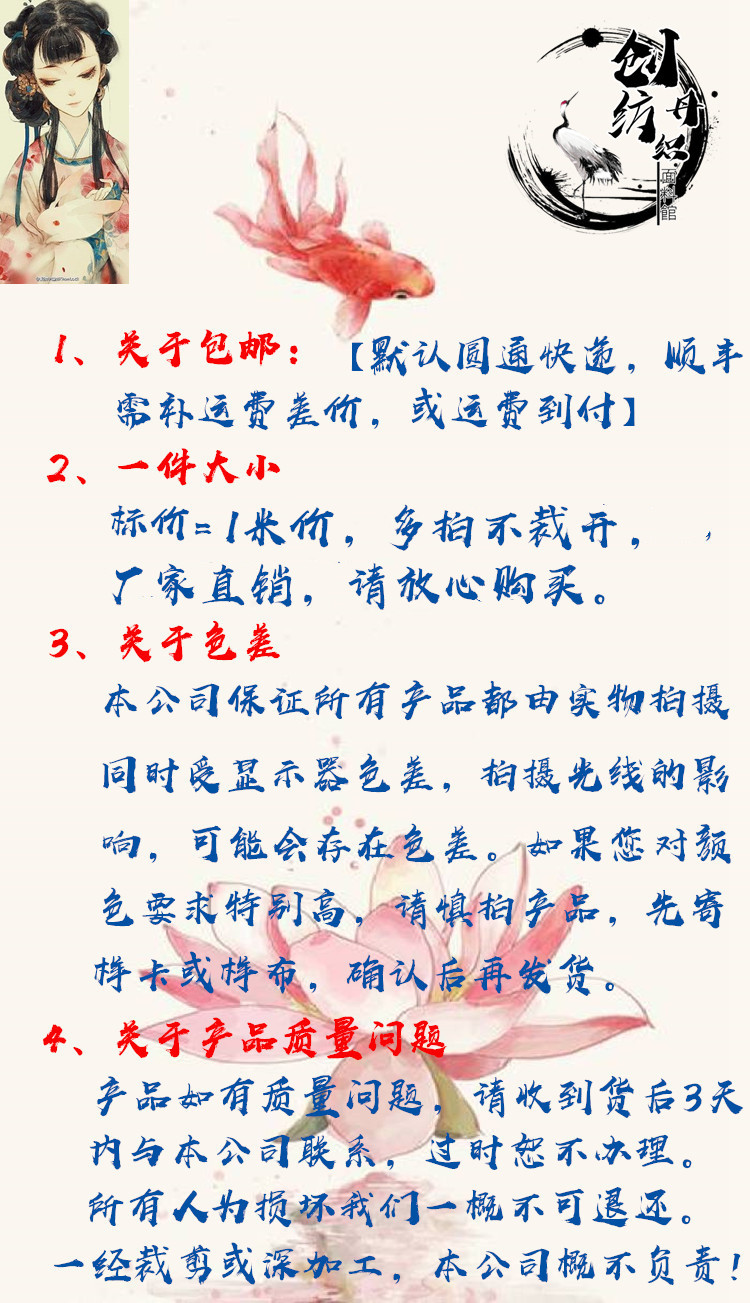 创丹
纺织
面料館
1、关于包邮：【默认圆通快递，顺丰
需补运费差价，或运费到付】
2、一件大小
标价=1米价，多拍不裁开，，
厂家直销，请放心购买。
3、关于色差
本公司保证所有产品都由实物拍摄
同时受显示器色差，拍摄光线的影
响，可能会存在色差。如果您对颜
色要求特别高，请慎拍产品，先寄
样卡或样布，确认后再发货。
4、关于产品质量问题
产品如有质量问题，请收到货后3天
内与本公司联系，过时恕不办理。
所有人为损坏我们一概不可退还。
一经裁剪或深加工，本公司概不负责！